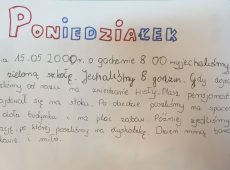 PONIEDZIAŁEK
a 15.05 2000r. o godzinie 8 00 wyjechaliśmy
zieloną szkołę. Jechaliśmy 8 godzin. Gdy
od razu na zwiedzanie Wisły. Nasz pensjonat
się na stoku. Po obiedzie poszliśmy na spacer
około budynku i na plac zabaw. Później
cję, po której poszliśmy na dyskotekę. Dzień minął
i miło.